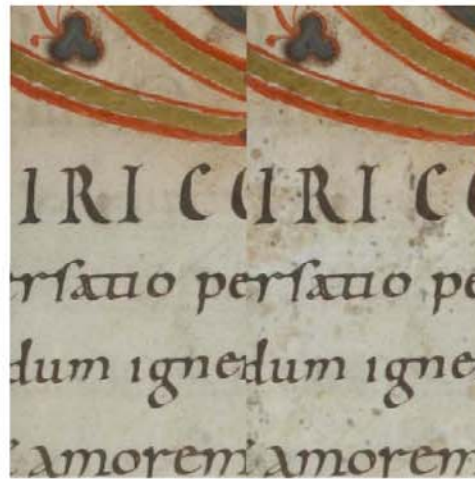 IRI CO IRI CO
ersatio persatio pe
dum ignedum igne
amorem amorem